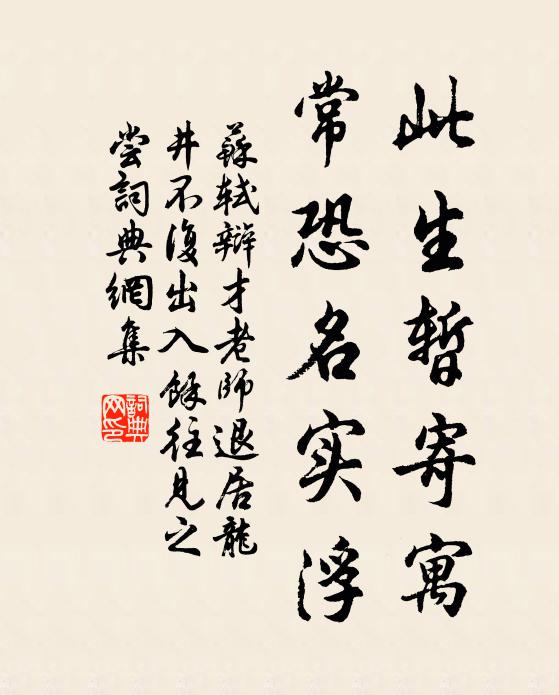 此生暫寄寓
常恐名实浮
蘇軾辯才老師退居龍
井不復出入餘往見之
尝詞典網集
詞典
网印